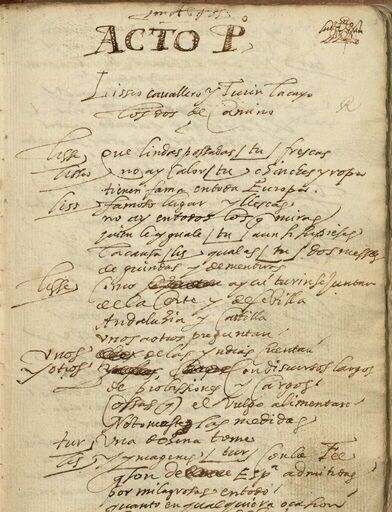 ACTO P.º
Liseo cavallero y Turin lacayo
los dos de camino
lisse que lindas possadas / tu / frescas
lisseo no ay calor / tu / chinches y ropa
tienen fama en toda Europa.
liss famoso lugar yllescas
no ay en todos los q miras
quien le yguale / tu / aun si supieses
la causa / lis / qual es / tu / dos meses
de guindas y de mentiras
lisse como aqui turin se juntan
de la Corte y de sevilla
Andaluzia y Castilla
unos a otros preguntan
unos de las yndias cuentan
y otros con discursos largos
de provissiones y cargos
cossas q el vulgo alimentan
No tomaste las medidas
tur una dozena tome
lis y ymagenes / tur / con la Fee
q son de Esp.ª admitidas
por milagrosas en todo
quanto en qualquiera ocasion